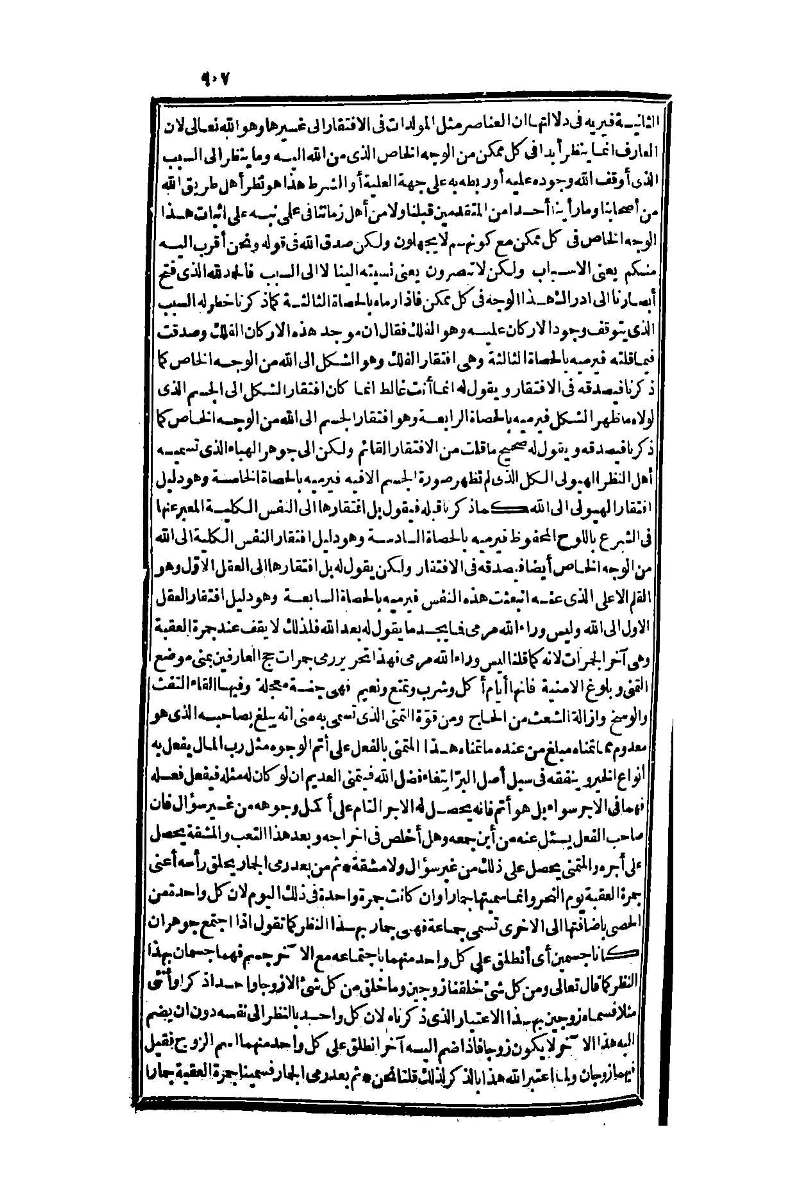 ٩٠٧
الثانية فيريه في دلالتها ان العناصر مثل المولدات في الافتقار الى غيرها وهو الله تعالى لان
العارف انما ينظر أبدا في كل ممكن من الوجه الخاص الذى من الله اليه وما ينظر الى السبب
الذى أوقف الله وجوده عليه أو ربطه به على جهة العلية أو الشرط هذا هو نظر أهل طريق الله
من أصحابنا وما رأينا أحدا من المتقدمين قبلنا ولا من أهل زماننا في على نبه على اثبات هذا
الوجه الخاص في كل ممكن مع كونهم لا يجهلون ولكن صدق الله في قوله ونحن أقرب اليه
منكم يعنى الاسباب ولكن لا تبصرون يعنى نسبته الينا لا الى السبب فالحمد لله الذى فتح
أبصارنا الى ادراك هذا الوجه في كل ممكن فاذا رماه بالحصاة الثالثة كما ذكرنا خطر له السبب
الذى يتوقف وجود الاركان عليه وهو الفلك فقال ان موجد هذه الاركان الفلك وصدقت
فيما قلته فيرميه بالحصاة الثالثة وهى افتقار الفلك وهو الشكل الى الله من الوجه الخاص كما
ذكرنا فيصدقه في الافتقار ويقول له انما أنت غالط انما كان افتقار الشكل الى الجسم الذى
لولاه ما ظهر الشكل فيرميه بالحصاة الرابعة وهو افتقار الجسم الى الله من الوجه الخاص كما
ذكرنا فيصدقه ويقول له صحيح ما قلت من الافتقار القائم ولكن الى جوهر الهباء الذى تسميه
أهل النظر الهيولى الكل الذى لم تظهر صورة الجسم الا فيه فيرميه بالحصاة الخامسة وهو دليل
افتقار الهيولى الى الله كما ذكرنا قبله فيقول بل افتقارها الى النفس الكلية المعبر عنها
في الشرع باللوح المحفوظ فيرميه بالحصاة السادسة وهو دليل افتقار النفس الكلية الى الله
من الوجه الخاص أيضا فيصدقه في الافتقار ولكن يقول له بل افتقارها الى العقل الاول وهو
القلم الاعلى الذى عنه انبعثت هذه النفس فيرميه بالحصاة السابعة وهو دليل افتقار العقل
الاول الى الله وليس وراء الله مرمى فما يجد ما يقول له بعد الله فلذلك لا يقف عند جمرة العقبة
وهى آخر الجمرات لانه كما قلنا ليس وراء الله مرمى فهذا تحرير رمى جمرات حج العارفين بمنى موضع
التمنى وبلوغ الامنية فانها أيام أكل وشرب وتمتع ونعيم فهى جنة معجلة وفيها القاء التفث
والوسخ وازالة الشعث من الحاج ومن قوة التمنى الذى تسمى به منى انه يبلغ بصاحبه الذى هو
معدوم مما تمناه مبلغ من عنده ما تمناه هذا المتمنى بالفعل على أتم الوجوه مثل رب المال يفعل به
انواع الخير وينفقه في سبل أصل البر ابتغاء فضل الله فيتمنى العديم ان لو كان له مثله فيفعل فعله
فهما في الاجر سواء بل هو أتم فانه يحصل له الاجر التام على أكمل وجوهه من غير سؤال فان
صاحب الفعل يسئل عنه من أين جمعه وهل أخلص في اخراجه وبعد هذا التعب والمشقة يحصل
على أجره والمتمنى يحصل على ذلك من غير سؤال ولا مشقة * ثم من بعد رمى الجمار يحلق رأسه أعنى
جمرة العقبة يوم النحر وانما سميتها جمارا وان كانت جمرة واحدة في ذلك اليوم لان كل واحدة من
الحصى باضافتها الى الاخرى تسمى جماعة فهى جمار بهذا النظر كما تقول اذا اجتمع جوهران
كانا جسمين أى انطلق على كل واحد منهما باجتماعه مع الآخر جسم فهما جسمان بهذا
النظر كما قال تعالى ومن كل شئ خلقنا زوجين وما خلق من كل شئ الا زوجا واحدا ذكرا وأنثى
مثلا فسماه زوجين بهذا الاعتبار الذى ذكرناه لان كل واحد بالنظر الى نفسه دون ان يضم
اليه هذا الآخر لا يكون زوجا فاذا ضم اليه آخر انطلق على كل واحد منهما اسم الزوج فقيل
فيهما زوجان ولما اعتبر الله هذا بالذكر لذلك قلنا نحن * ثم بعد رمى الجمار فسمينا جمرة العقبة جمارا